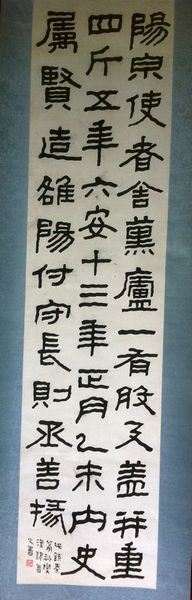 陽泉使者舍薰廬一有般及蓋并重
四斤五年六安十三年正月乙未内史
屬賢造雒陽付守長則丞善掾
篆初變
之書